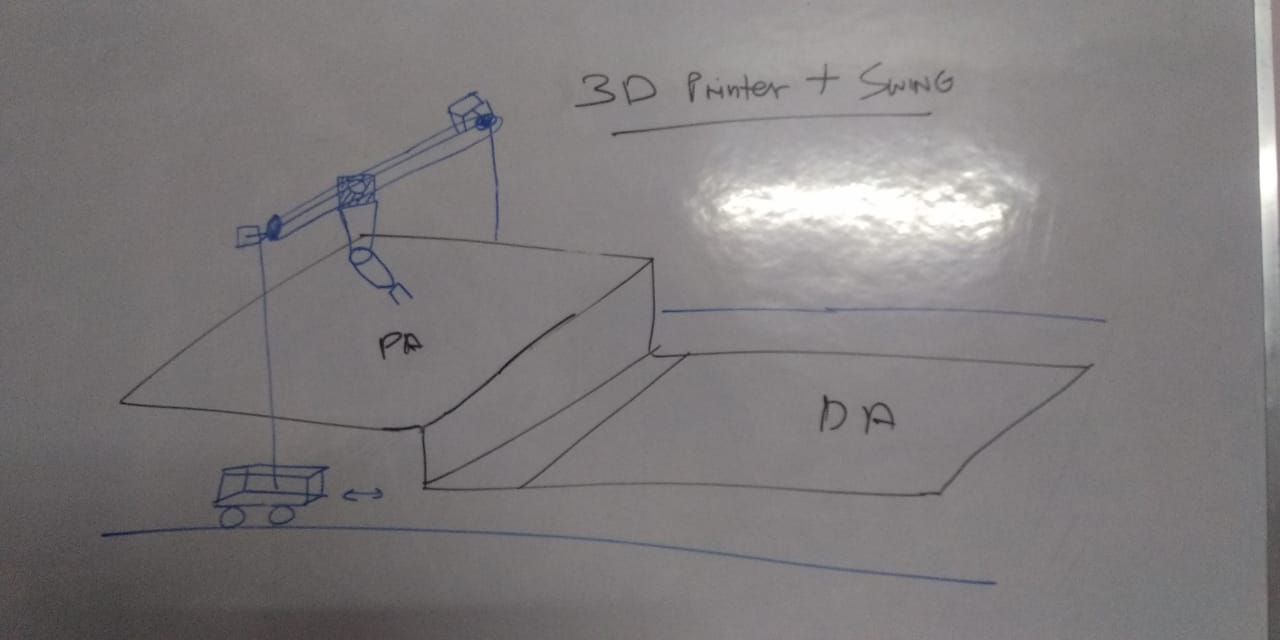 3D Printer + SWING
PA
DA